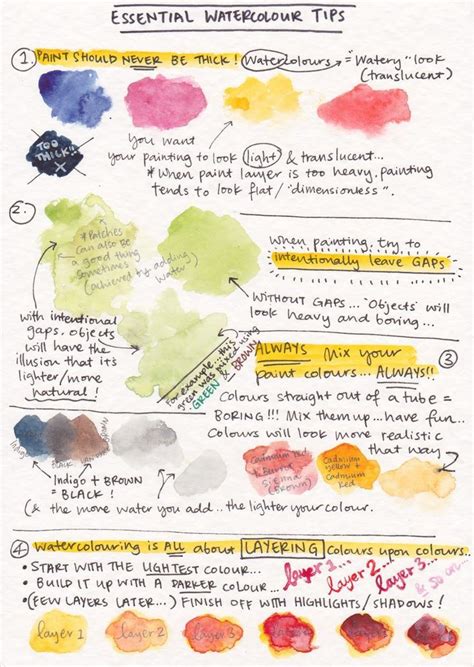 ESSENTIAL WATERCOLOUR TIPS
1. PAINT SHOULD NEVER BE THICK! Watercolours = "Watery" look
(translucent)
TOO
THICK!!
X
You want
your painting to look light & translucent...
* When paint layer is too heavy, painting
tends to look flat/"dimensionless".
2.
* Patches
can also be
a good thing
sometimes
(achieved by adding
water)
When painting, try to
intentionally leave GAPS
WITHOUT GAPS... 'Objects' will
look heavy and boring...
with intentional
gaps, objects
will have the
illusion that it's
lighter/more
natural!
For example... this
green was mixed using
GREEN & BROWN
ALWAYS Mix your
paint colours... ALWAYS!!
3
Colours straight out of a tube =
BORING!!! Mix them up... have fun...
Colours will look more realistic
that way
Indigo
Black
Indigo + BROWN
= BLACK!
(& the more water you add... the lighter your colour.
cadmium red
+ burnt
sienna
(BROWN)
cadmium
yellow +
cadmium
red
4 watercolouring is ALL about LAYERING colours upon colours..
• START WITH THE LIGHTEST colour...
• BUILD IT UP WITH A DARKER COLOUR...
• (FEW LAYERS LATER...) FINISH OFF WITH HIGHLIGHTS/SHADOWS!
layer 1... layer 2... layer 3... & so on
layer 1 layer 2 layer 3